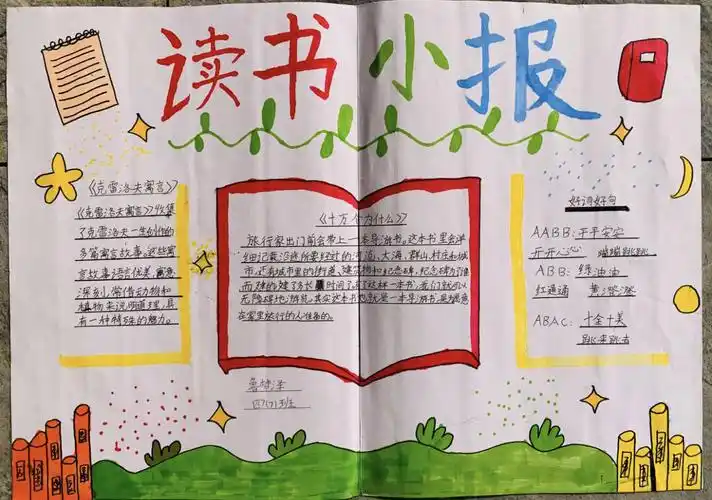 读书小报
《克雷洛夫寓言》
《克雷洛夫寓言》收集
了克雷洛夫一生创作的
多篇寓言故事,这些寓
言故事语言优美,寓意
深刻,常借动物和
植物来说明道理,具
有一种特殊的魅力。
《十万个为什么》
旅行家出门前会带上一本导游书。这本书里会详
细记载沿途所要经过的河道、大海、群山、村庄和城
市,还有城市里的街道、建筑物和纪念碑,纪念碑为谁
而建的建了多长时间了,有了这样一本书,我们就可以
无障碍地游玩。其实这本书也就是一本导游书,是为愿意
在家里旅行的人准备的。
四(7)班
好词好句
AABB:平平安安
开开心心 蹦蹦跳跳
ABB:绿油油
红通通 黄澄澄
ABAC:十全十美
跳来跳去